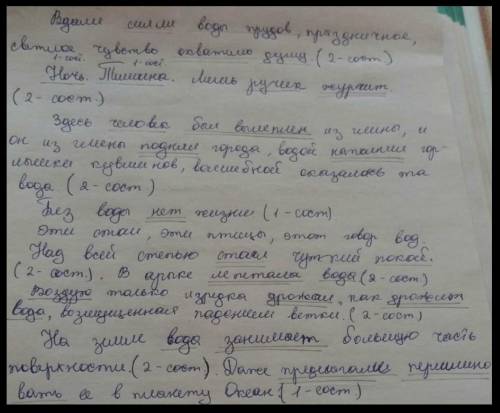 Вдали сияли воды прудов, праздничное,
светлое чувство охватило душу. (2-сост)
1-сост. 1-сост.
Ночь. Тишина. Лишь ручей журчит.
(2-сост.)
Здесь человек был вылеплен из глины, и
он из глины поднял города, водой наполнил гор-
лышки кувшинов, волшебной оказалась та
вода (2-сост)
Без воды нет жизни (1-сост)
Эти стаи, эти птицы, этот говор вод.
Над всей степью стоял чуткий покой.
(2-сост). В арыке лепетала вода (2-сост)
Воздух только изредка дрожал, как дрожит
вода, возмущенная падением ветки. (2-сост)
На земле вода занимает большую часть
поверхности. (2-сост). Даже предлагалось переимено
вать ее в планету Океан. (1-сост)